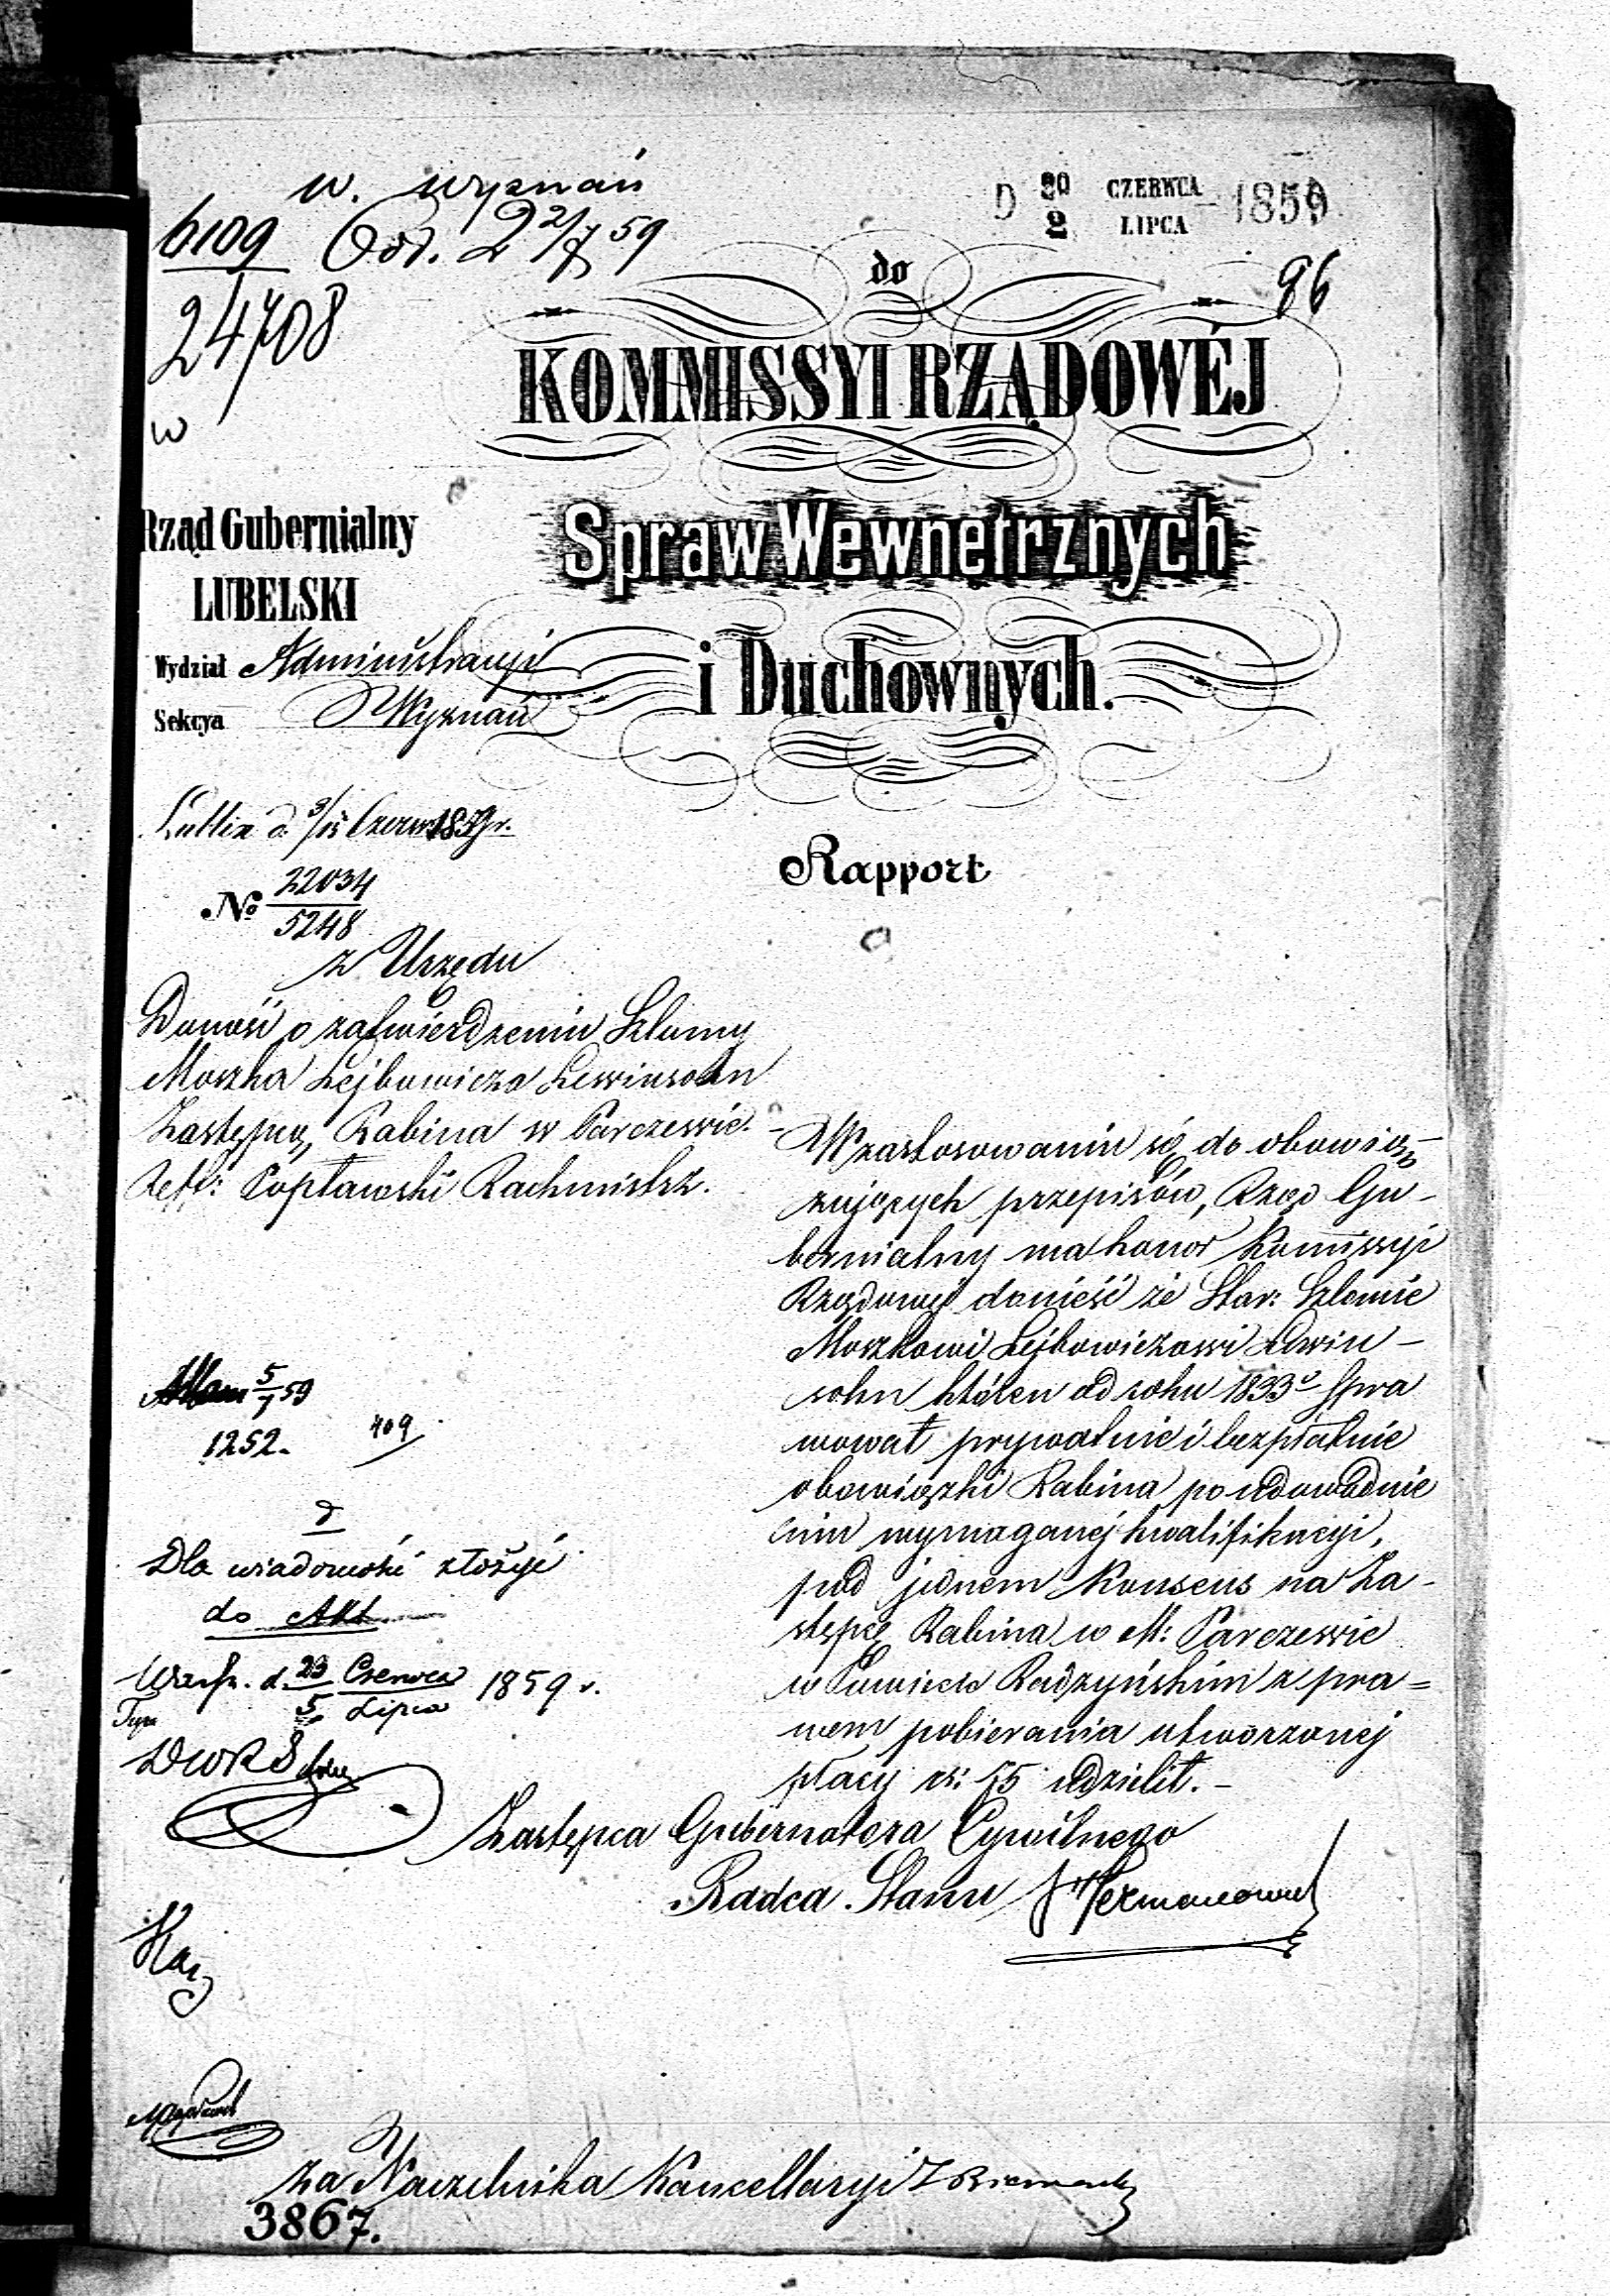 w. wyznań
6109 Od. 2 2/7 59
24708
w
D 20/2 CZERWCA/LIPCA 1859
96
do
KOMMISSYI RZĄDOWÉJ
Spraw Wewnętrznych
i Duchownych.
Rząd Gubernialny
LUBELSKI
Wydział Administracyi
Sekcya Wyznań
Lublin d. 3/15 Czerw 1859 r.
№ 22034/5248
Rapport
z Urzędu
Donosi o zatwierdzeniu Szlamy
Moszka Lejbowicza Lewinsohn
Zastępcą Rabina w Parczewie.
Reff: Popławski Rachmistrz.
W zastosowaniu się do obowią-
zujących przepisów, Rząd Gu-
bernialny ma honor Kommissyi
Rządowej donieść że Star: Szlamie
Moszkowi Lejbowiczowi Lewin-
sohn któren od roku 1833 spra
wował prywatnie i bezpłatnie
obowiązki Rabina po udowodnie
niu wymaganej kwalifikacyi,
pod jednem Konsens na Za-
stępcę Rabina w M: Parczewie
w Powiecie Radzyńskim z pra=
wem pobierania utworzonej
płacy rs: 75 udzielił.-
5/7 59
1252. 409
d
Dla wiadomości złożyć
do Akt
Warsz. d. 23/5 Czerwca/Lipca 1859 r.
Zastępca Gubernatora Cywilnego
Radca Stanu
Za Naczelnika Kancellaryi
3867.